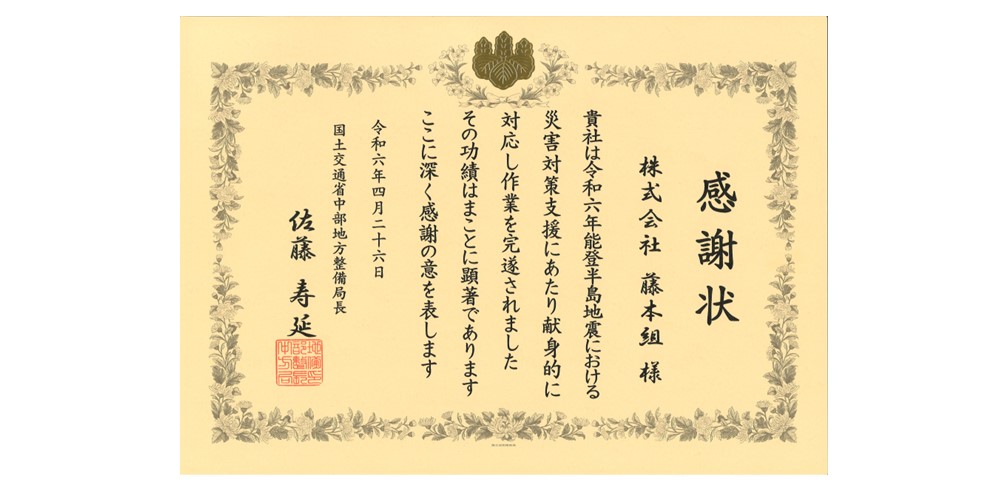 感謝状
株式会社 藤本組 様
貴社は令和六年能登半島地震における
災害対策支援にあたり献身的に
対応し作業を完遂されました
その功績はまことに顕著であります
ここに深く感謝の意を表します
令和六年四月二十六日
国土交通省中部地方整備局長
佐藤 寿延